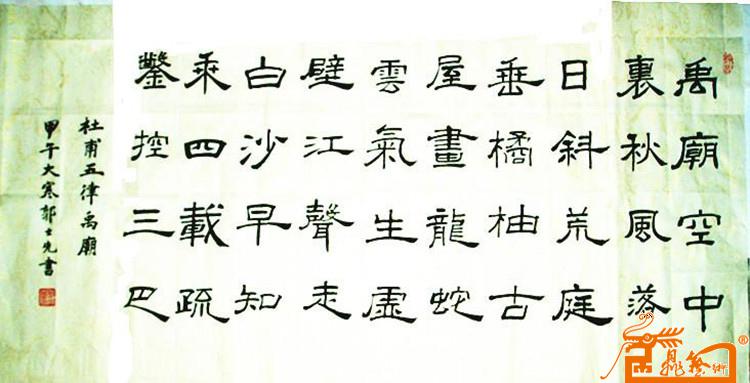 禹廟空中
裏秋風落
日斜荒庭
垂橘柚古
屋畫龍蛇
雲氣生虛
壁江聲走
白沙早知
乘四載疏
鑿控三巴
杜甫五律禹廟
甲午大寒郭士先書